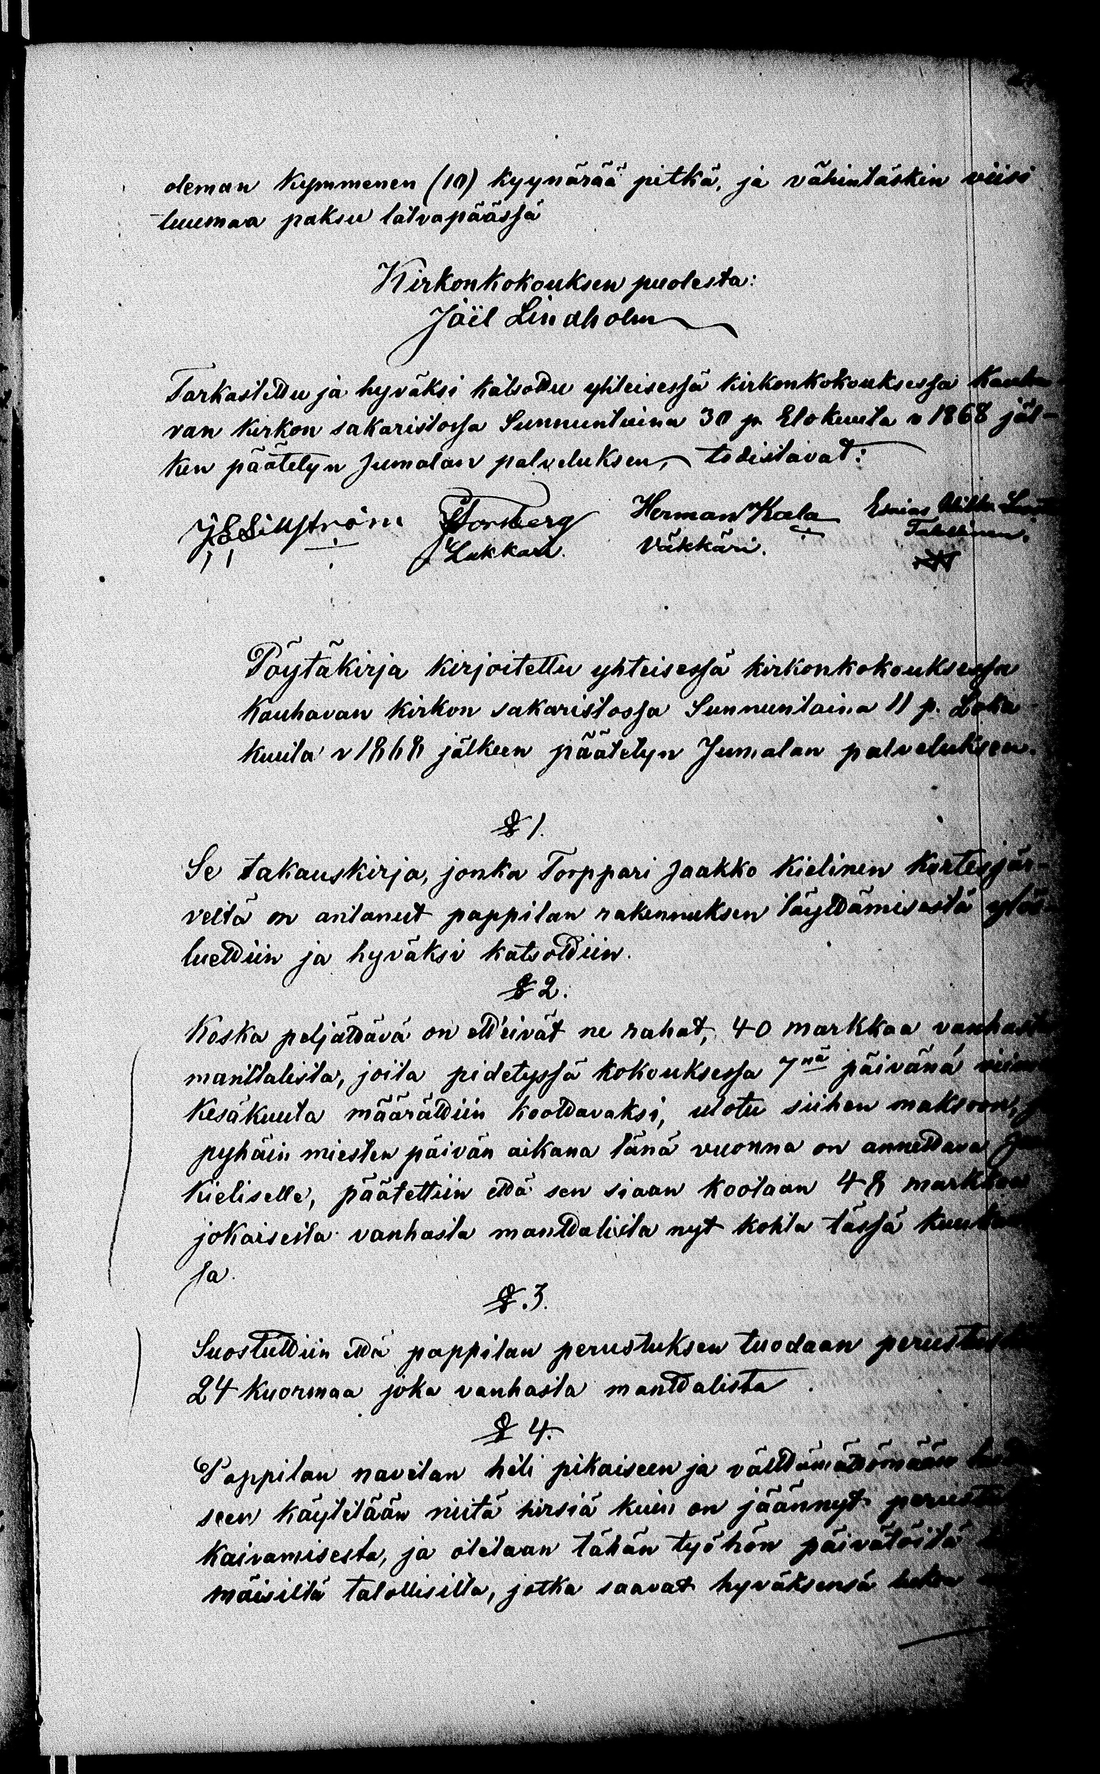 oleman kymmenen (10) kyynärää pitkä, ja vähintäskin viisi
tuumaa paksu latvapäässä
Kirkonkokouksen puolesta:
Joël Lindholm
Tarkastettu ja hyväksi katsottu yhteisessä kirkonkokouksessa Kauha-
van kirkon sakaristossa Sunnuntaina 30 p. Elokuuta v 1868 jäl-
ken päätetyn Jumalan palveluksen, todistavat:
Forsberg Herman Kala Esaias
Lukkari. Väkkäri.
Pöytäkirja kirjoitettu yhteisessä kirkonkokouksessa
Kauhavan kirkon sakaristossa Sunnuntaina 11 p. Loka
kuuta v 1868 jälkeen päätetyn Jumalan palveluksen.
§ 1.
Se takauskirja, jonka Torppari Jaakko Kielinen Kortesjär-
veltä on antanut pappilan rakennuksen täyttämisestä ylös
luettiin ja hyväksi katsottiin.
§ 2.
Koska peljättävä on etteivät ne rahat, 40 markkaa vanhasta
manttalista, joita pidetyssä kokouksessa 7nä päivänä viime
Kesäkuuta määrättiin koottavaksi, ulotu siihen maksoon,
pyhäin miesten päivän aikana tänä vuonna on annettava
Kieliselle, päätettiin että sen siaan kootaan 48 markkaa
jokaisesta vanhasta manttalista nyt kohta tässä kuukau
sa.
§. 3.
Suostuttiin että pappilan perustuksen tuodaan
24 kuormaa joka vanhasta manttalista.
§ 4.
Pappilan navetan heti pikaiseen ja välttämättömään
seen käytetään niitä hirsiä kuin on jäännyt
kaivamisesta, ja otetaan tähän työhön päivätöitä
mäisiltä talollisilta, jotka saavat hyväksensä